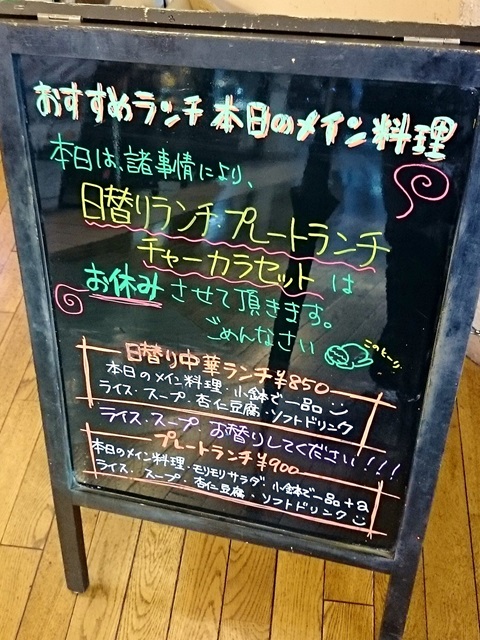 おすすめランチ 本日のメイン料理
本日は、諸事情により、
日替りランチ・プレートランチ
チャーカラセット は
お休み させて頂きます。
ごめんなさい
日替り中華ランチ¥850
本日のメイン料理・小鉢で一品
ライス・スープ・杏仁豆腐・ソフトドリンク
ライス・スープ お替りしてください!!!
プレートランチ¥900
本日のメイン料理・モリモリサラダ 小鉢で一品+a
ライス・スープ・杏仁豆腐・ソフトドリンク